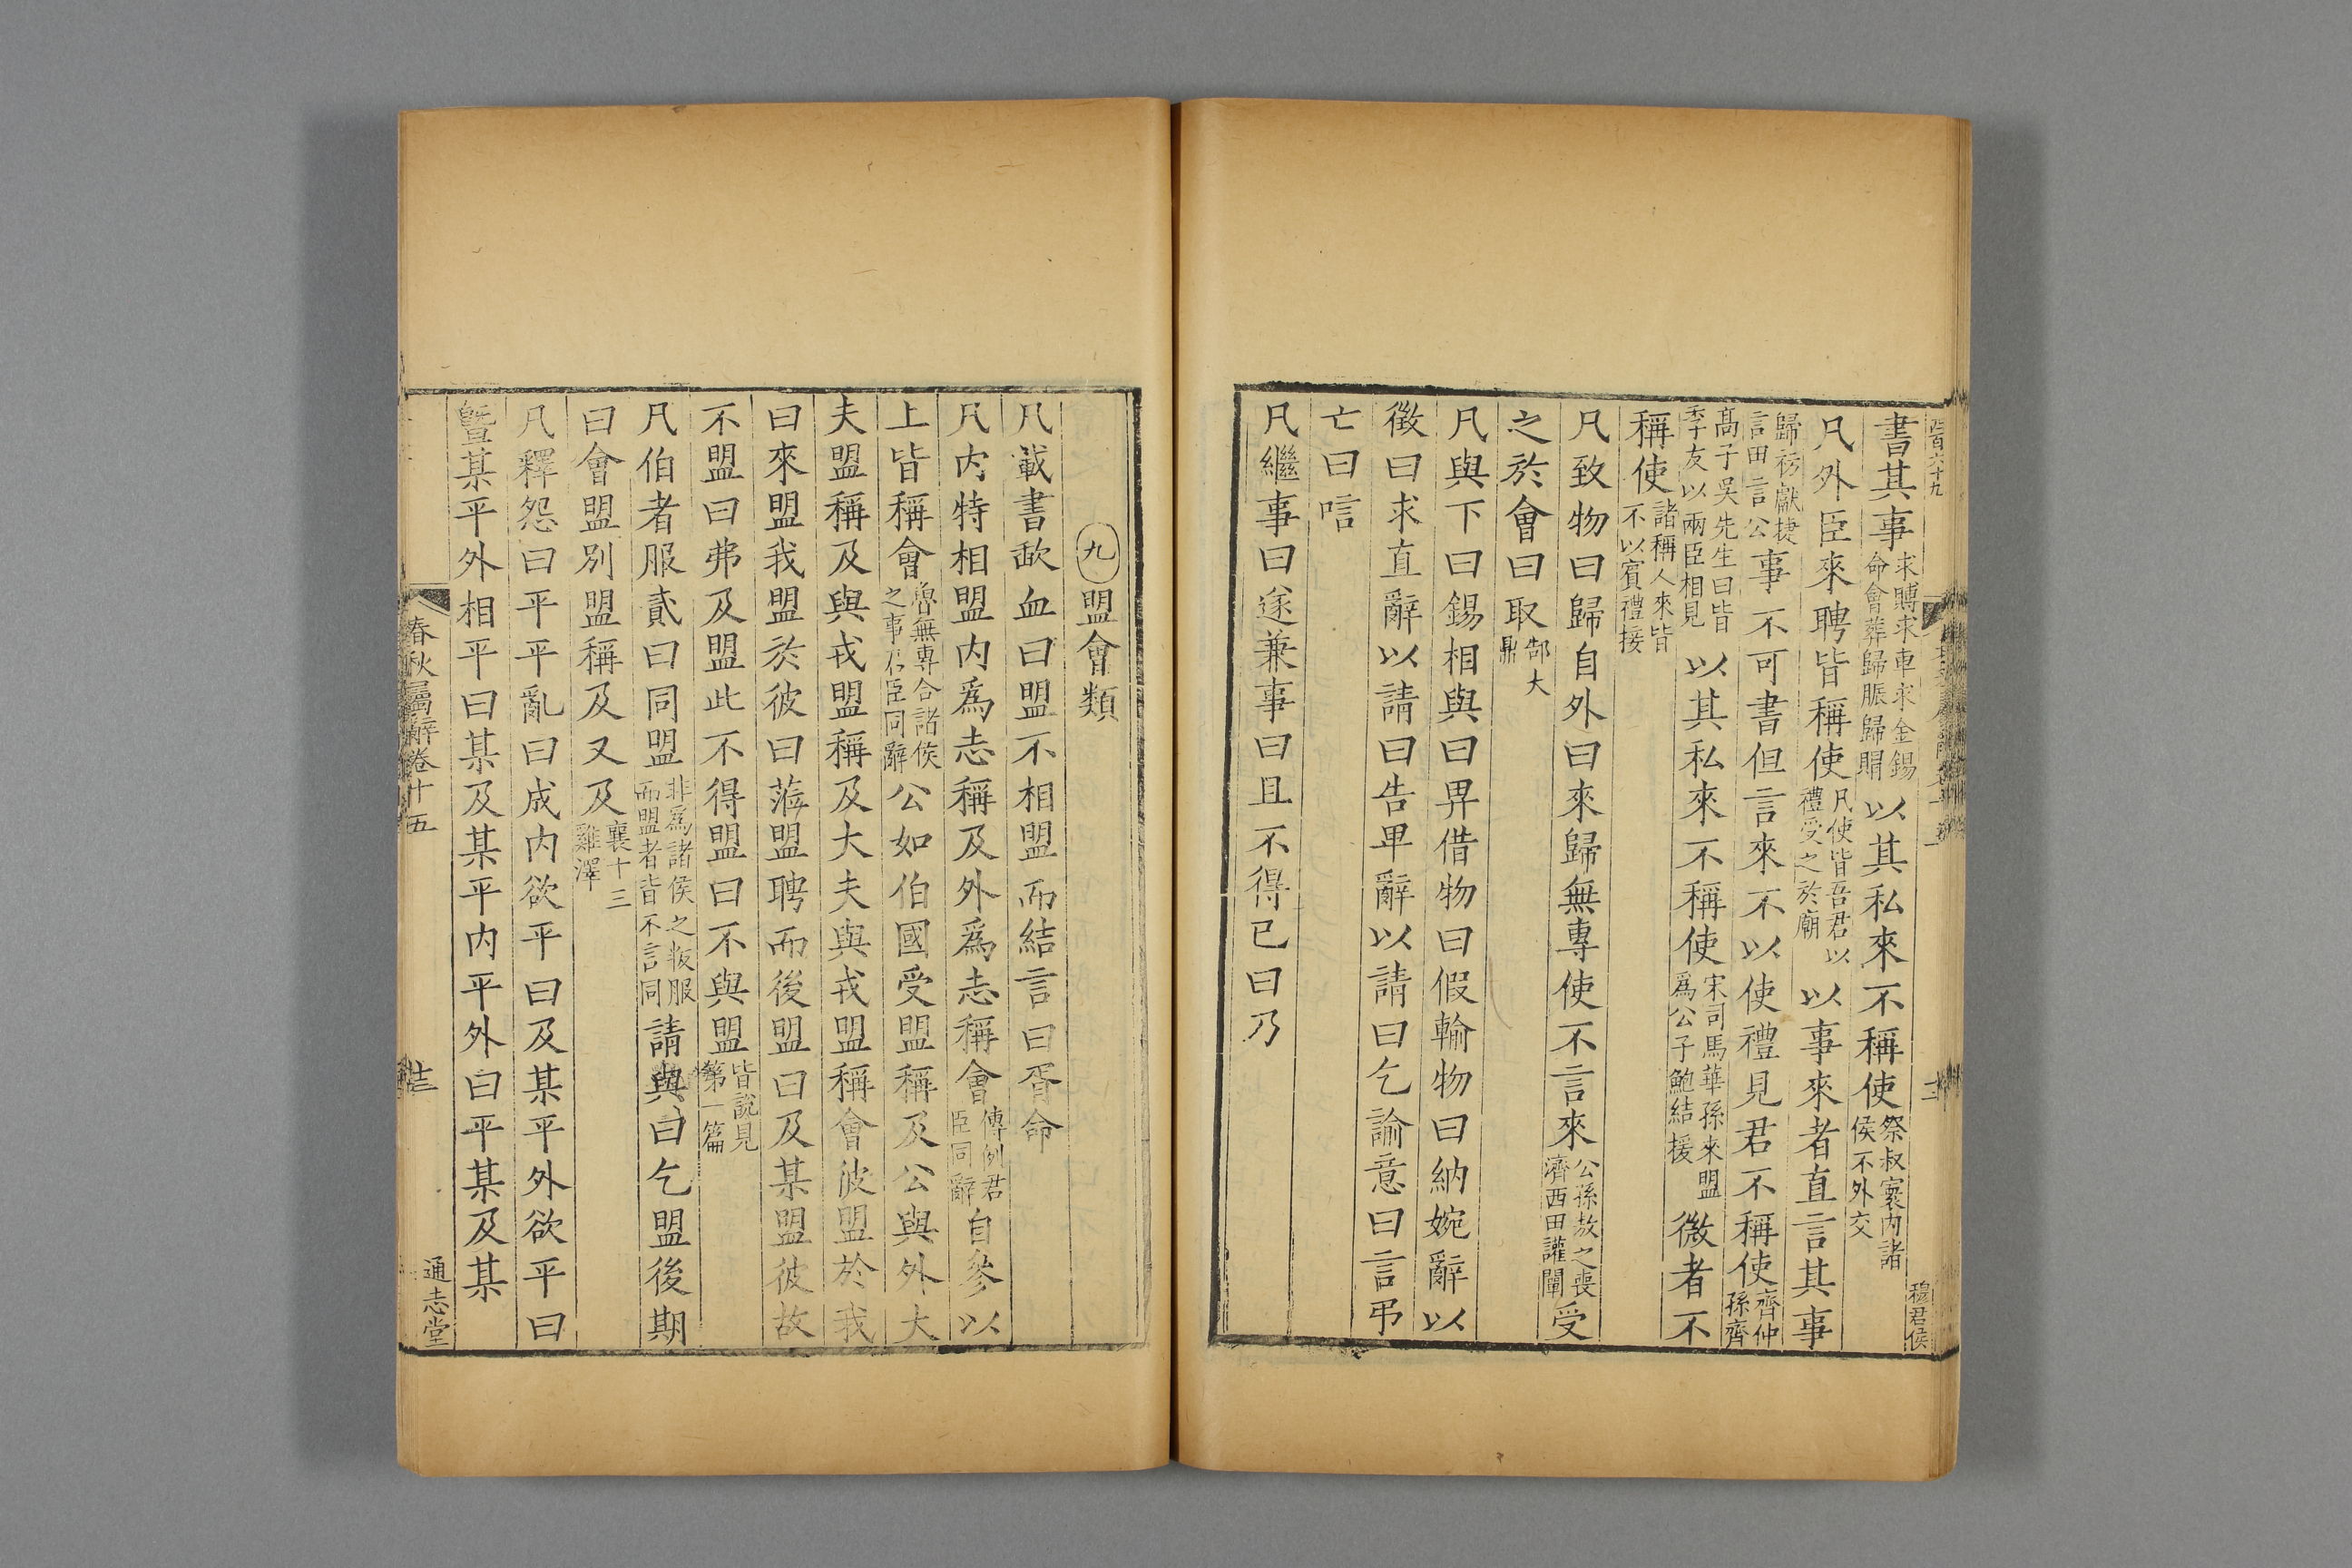 書其事求賻求車求金錫命會葬歸脤歸賵以其私來不稱使祭叔寰内諸侯不外交
凡外臣來聘皆稱使凡使皆吾君以禮受之於廟以事來者直言其事
歸祊獻捷言田言公事不可書但言來不以使禮見君不稱使齊仲孫齊
髙子吳先生曰皆季友以兩臣相見以其私來不稱使宋司馬華孫來盟爲公子鮑結援微者不
稱使諸稱人來皆不以賓禮接
凡致物曰歸自外曰來歸無專使不言來公孫敖之喪濟西田讙闡受
之於會曰取郜大鼎
凡與下曰錫相與曰畀借物曰假輸物曰納婉辭以
徵曰求直辭以請曰告卑辭以請曰乞諭意曰言弔
亡曰唁
凡繼事曰遂兼事曰且不得已曰乃
穆君侯
九盟會類
凡載書歃血曰盟不相盟而結言曰胥命
凡内特相盟内爲志稱及外爲志稱會傳例君臣同辭自參以
上皆稱會魯無專合諸侯之事君臣同辭公如伯國受盟稱及公與外大
夫盟稱及與戎盟稱及大夫與戎盟稱會彼盟於我
曰來盟我盟於彼曰涖盟聘而後盟曰及某盟彼故
不盟曰弗及盟此不得盟曰不與盟皆說見第一篇
凡伯者服貳曰同盟非爲諸侯之叛服而盟者皆不言同請與曰乞盟後期
曰會盟別盟稱及又及襄十三雞澤
凡釋怨曰平平亂曰成内欲平曰及某平外欲平曰
曁某平外相平曰某及某平内平外曰平某及某
春秋屬辭卷十五
通志堂